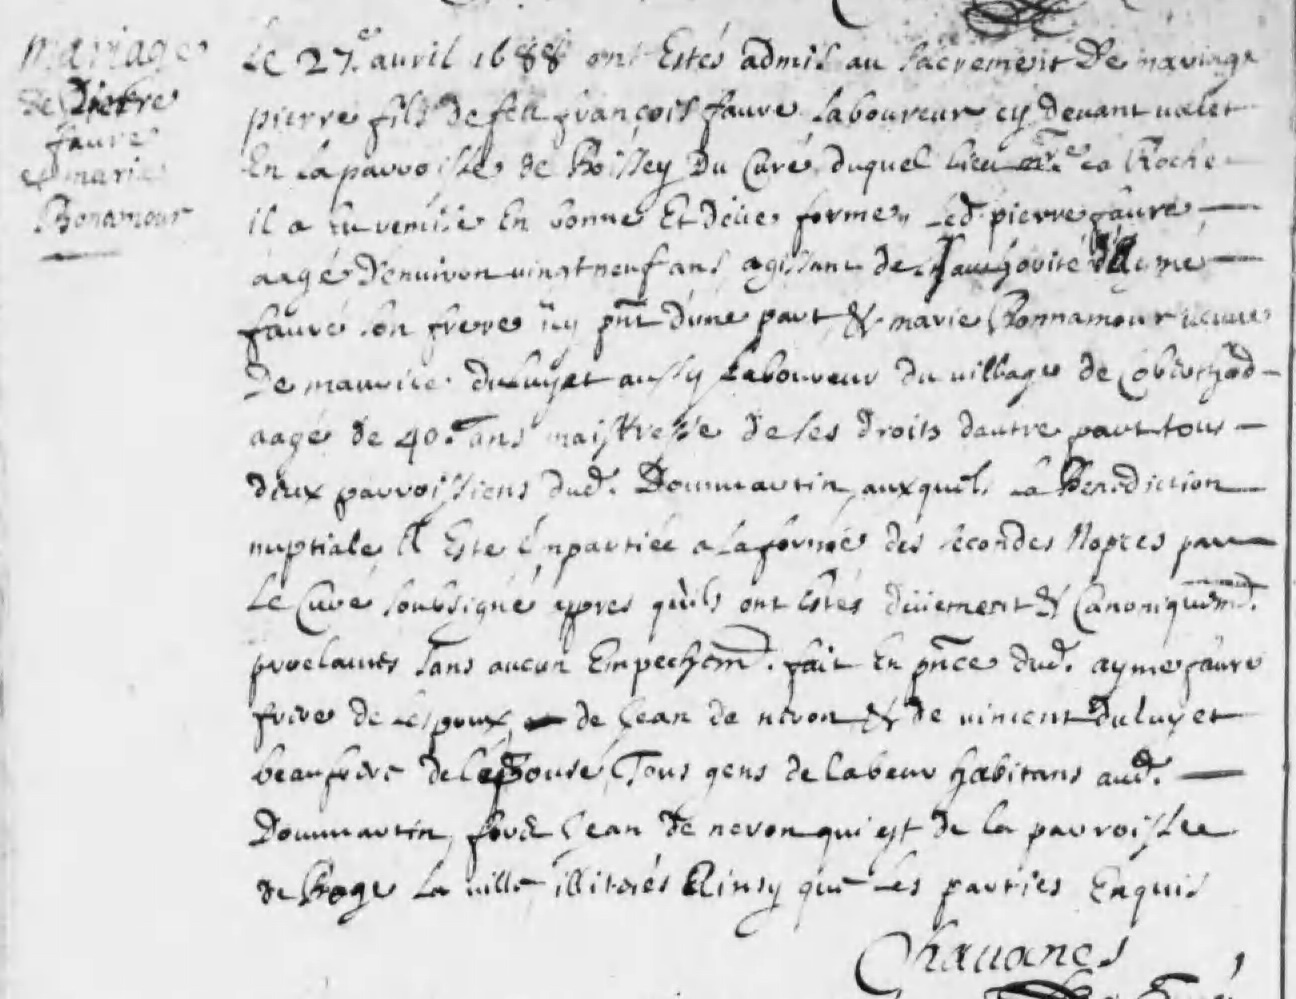 mariage
de Pierre
faure
et marie
Bonamour
Le 27.e avril 1688 ont Estés admis au sacrement De mariage
pierre fils de feu françois faure Laboureur cy devant valet
En la parroisse de Boissey Du Curé duquel lieu la Roche
il a en bonne Et deüe forme, Led. pierre faure
aagé d'environ vingt neuf ans, agissant de d'Aymé
fauré son frere icy pñt d'une part, & marie Bonnamour veuve
De maurice duluyet aussy Laboureur du village de
aagé de 40. ans maistresse de ses droits dautre part, tous
deux parroissiens dud. Dommartin, auxquels La Benediction
nuptiale a Esté Impartiée a la forme des secondes Nopces par
Le Curé soubsigné apres qu'ils ont Estés düement & Canoniquemt.
proclamés sans aucun Empechemt. fait En pñce dud. ayme faure
frere de Lespoux, de Jean de neron & de vincent duluyet
beaufrere de l'épouse, Tous gens de labeur habitans aud.
Dommartin, fors Jean de neron qui est de la parroisse
de Bage La ville, illiterés Ainsy que Les parties Enquis
Chavanes